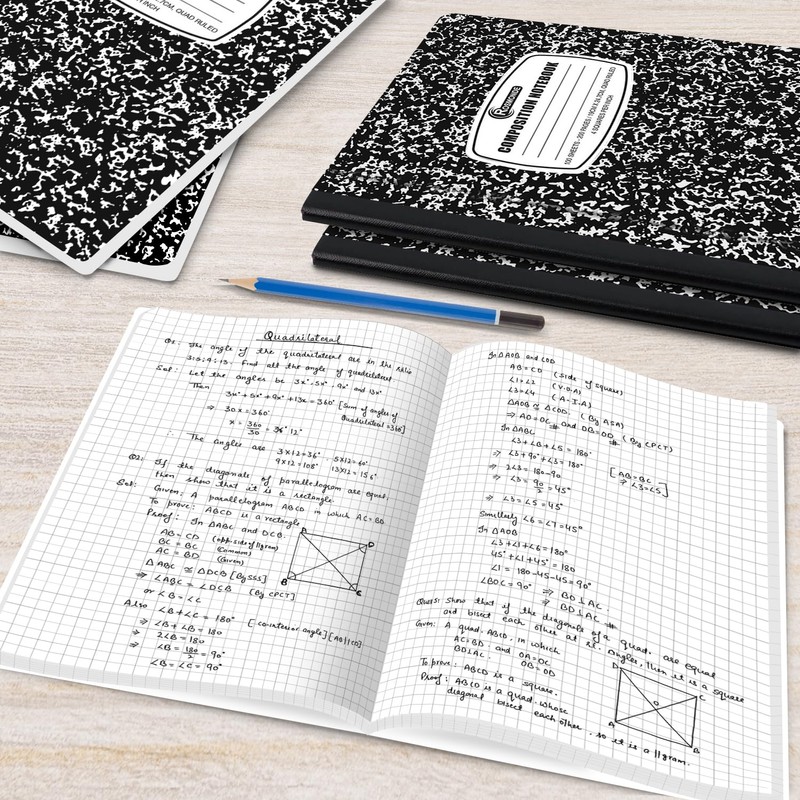 .7CM, QUAD RULED
R INCH
COMPOSITION NOTEBOOK
100 SHEETS - 200 PAGES / 19CM X 24.7CM, QUAD RULED
4 SQUARES PER INCH
Quadrilateral
Q1: The angle of the quadrilateral are in the Ratio
3:5:9:13. Find all the angle of quadrilateral
Sol: Let the angles be 3x°, 5x° 9x° and 13x°
Then
3x°+5x°+9x°+13x=360° [Sum of angles of
Quadrilateral =360]
⇒ 30x=360°
x = 360/30 = 12°
The angles are 3X12=36° 5X12=60°
9X12=108° 13X12=156°
Q2: If the diagonals of parallelogram are equal
then show that it is a rectangle.
Sol: Given: A parallelogram ABCD in which AC=BD
To prove: ABCD is a rectangle
Proof: In ΔABC and DCB.
AB=CD (opp. side of llgram)
BC=BC (Common)
AC=BD (Given)
ΔABC ≅ ΔDCB [By SSS]
⇒ ∠ABC=∠DCB (By CPCT)
or ∠B=∠C
Also ∠B+∠C=180° [-co-interior angle][AB||CD]
⇒ ∠B+∠B=180
⇒ 2∠B=180
⇒ ∠B=180/2=90°
∠B=∠C=90°
A
D
B
C
In ΔAOB and COD
AB=CD (Side of square)
∠1=∠2 (V.O.A)
∠3=∠4 (A-I.A)
ΔAOB ≅ ΔCOD. (By ASA)
⇒ AO=OC and OB=OD (By CPCT)
In ΔABC
∠3+∠B+∠5=180°
⇒ ∠3+90°+∠3=180° [AB=BC
⇒ ∠3=∠5]
⇒ 2∠3=180-90
⇒ ∠3=90/2=45°
⇒ ∠3=∠5=45°
Similerly ∠6=∠7=45°
In ΔAOB
∠3+∠1+∠6=180°
45°+∠1+45=180°
∠1=180-45-45=90°
∠BOC=90° ⇒ BO⊥AC
⇒ BD⊥AC
Ques: Show that if the diagonals of a quad. are equal
and bisect each other at rt. angles, then it is a square
Given: A quad. ABCD. in which
AC=BD. and OA=OC
BD⊥AC OB=OD
To prove: ABCD is a square.
Proof: ABCD is a quad. whose
diagonal bisect each other, so it is a llgram.
D
C
O
A
B